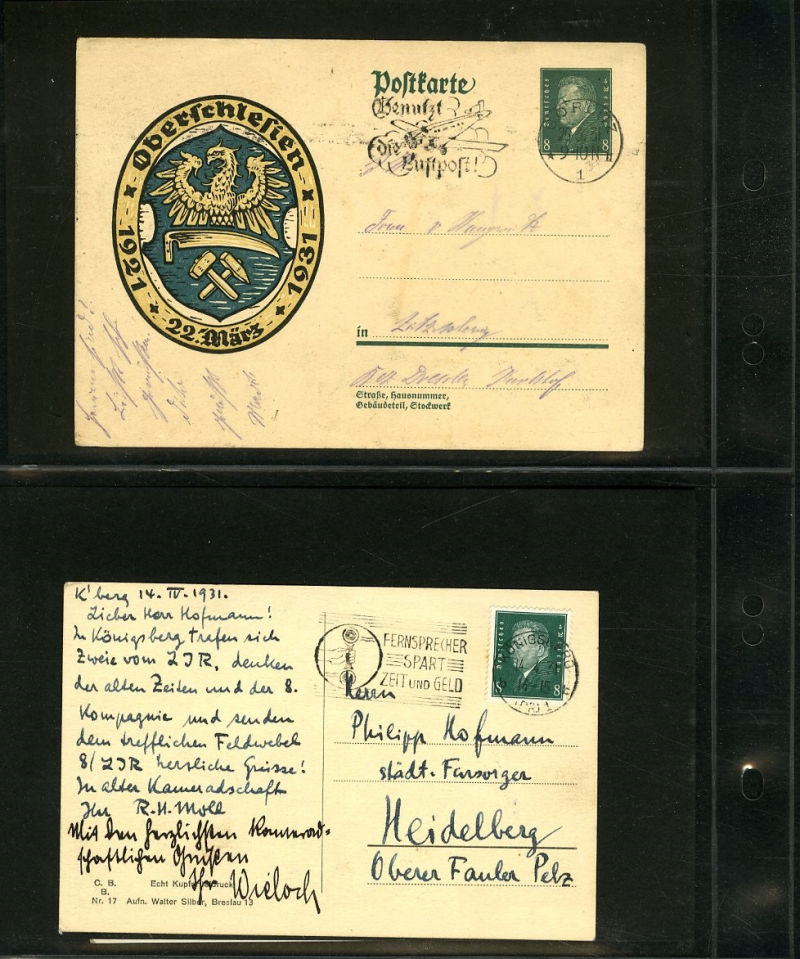 Postkarte
Oberschlesien
1921 1931
22. März
Benutzt
die
Luftpost!
Deutsches Reich
8 8
9-10
1
in
Straße, Hausnummer,
Gebäudeteil, Stockwerk
K'berg 14. IV. 1931.
Lieber Herr Hofmann!
In Königsberg trafen sich
Zweie vom LIR, denken
der alten Zeiten und der 8.
Kompagnie und senden
dem trefflichen Feldwebel
8/LIR herzliche Grüsse!
In alter Kameradschaft
Ihr R.H. Moll
Mit den herzlichsten Kamerad-
schaftlichen Grüßen
Ihr Wieloch
C. B.
B.
Echt Kupfertiefdruck
Nr. 17 Aufn. Walter Silber, Breslau 13
FERNSPRECHER
SPART
ZEIT UND GELD
Deutsches Reich
8 8
Herrn
Philipp Hofmann
städt. Fürsorger
Heidelberg
Oberer Fauler Pelz